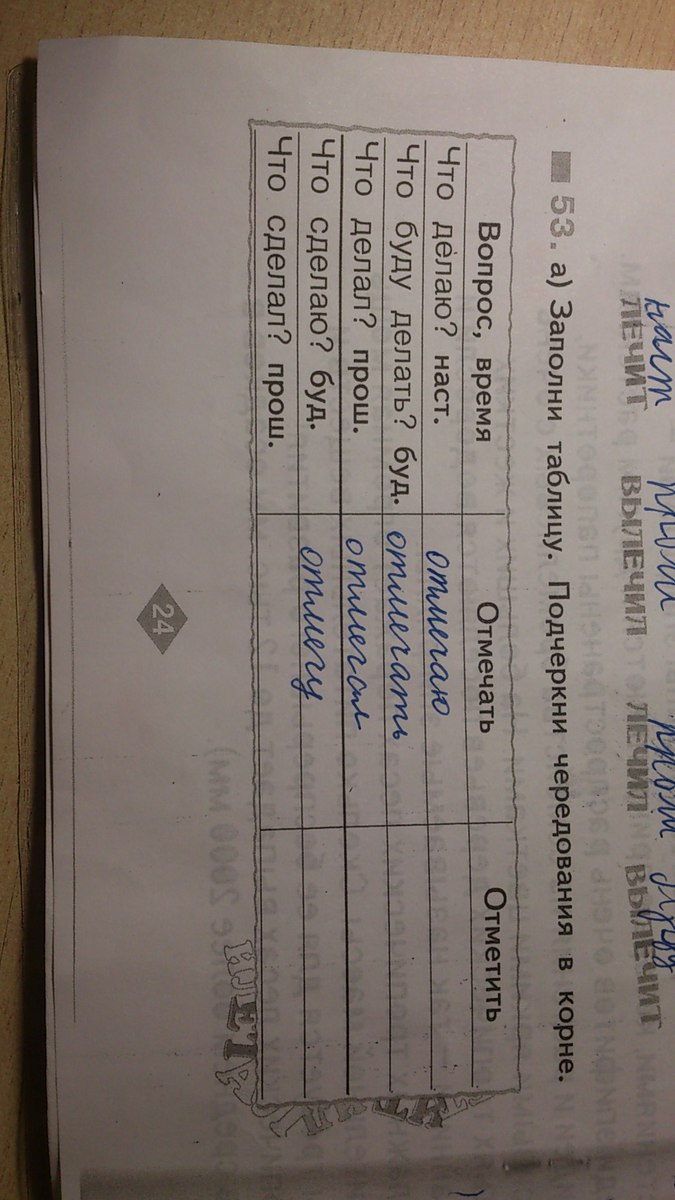 наст прош прош буд
ЛЕЧИТ ВЫЛЕЧИЛ ЛЕЧИЛ ВЫЛЕЧИТ
53. а) Заполни таблицу. Подчеркни чередования в корне.
Вопрос, время Отмечать Отметить
Что делаю? наст. отмечаю
Что буду делать? буд. отмечать
Что делал? прош. отмечал
Что сделаю? буд. отмечу
Что сделал? прош.
24